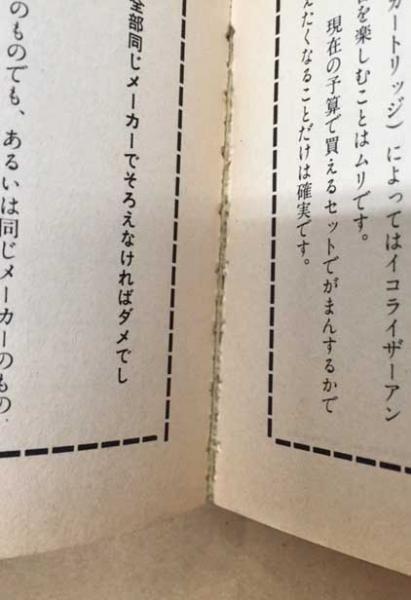 カートリッジ)によってはイコライザーアン
を楽しむことはムリです。
現在の予算で買えるセットでがまんするかで
えたくなることだけは確実です。
全部同じメーカーでそろえなければダメでし
のものでも、あるいは同じメーカーのもの